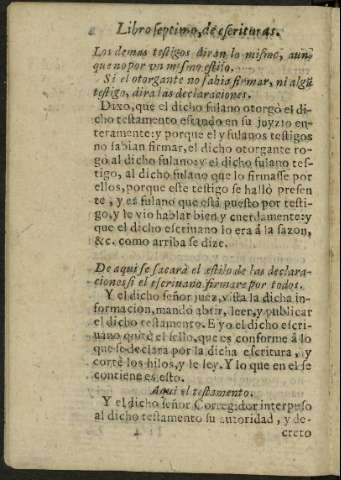 Libro septimo, de escrituras.
Los demas testigos diran lo mismo, aun-
que no por vn mismo estilo.
Si el otorgante no sabia firmar, ni algũ
testigo, dira las declaraciones.
Dixo, que el dicho fulano otorgò el di-
cho testamento estando en su juyzio en-
teramente: y porque el y fulanos testigos
no sabian firmar, el dicho otorgante ro-
gò al dicho fulano: y el dicho fulano tes-
tigo, al dicho fulano que lo firmasse por
ellos, porque este testigo se hallò presen
te, y es fulano que està puesto por testi-
go, y le vio hablar bien, y cuerdamente: y
que el dicho escriuano lo era á la sazon,
&c. como arriba se dize.
De aqui se sacarà el estilo de las declara-
ciones si el escriuano firmare por todos.
Y el dicho señor juez, vista la dicha in-
formacion, mandò abrir, leer, y publicar
el dicho testamento. E yo el dicho escri-
uano quitè el sello, que es conforme á lo
que se declara por la dicha escritura, y
cortè los hilos, y le ley. Y lo que en el se
contiene es esto.
Aqui el testamento.
Y el dicho señor Corregidor interpuso
al dicho testamento su autoridad, y de-
creto